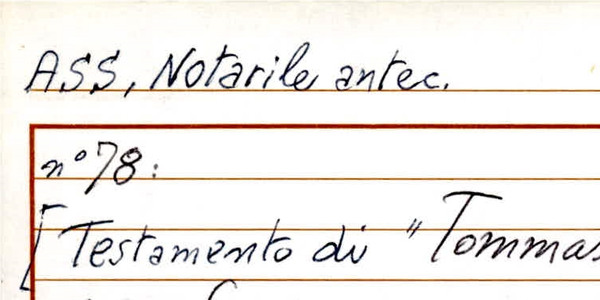 ASS, Notarile antec.
n° 78:
[Testamento di "Tommas